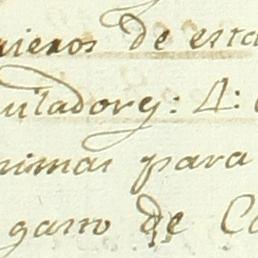 nieros de esta
uiladores: 4:
nimas para
gasto de Ca